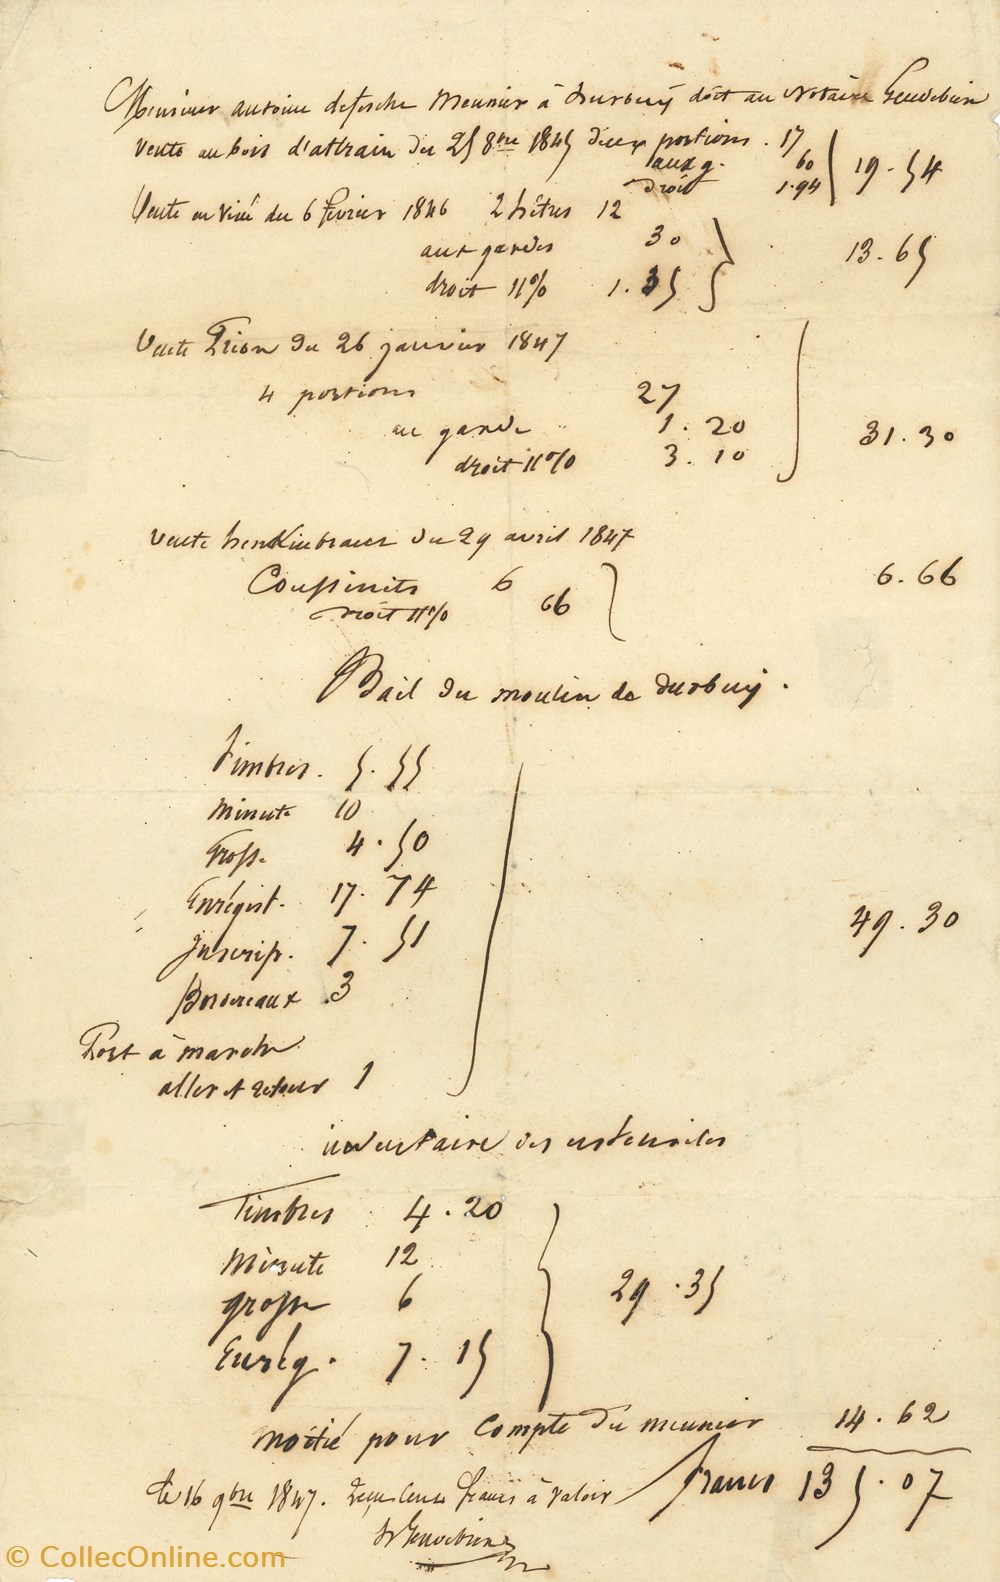 Monsieur antoine defosche Meunier à Durbuÿ doit au Notaire Geudebien
Vente au bois d'attrain du 25 8bre 1845 deux portions . 17
aux g. 60
droit 1.94
19.54
Vente en Viné du 6 février 1846 2 hêtres 12
aux gardes 30
droit 11% 1.35
13.65
Vente du 26 janvier 1847
4 portions 27
au garde 1.20
droit 11% 3.10
31.30
Vente du 29 avril 1847
Coussinets 6
droit 11% 66
6.66
Bail du moulin de Durbuÿ.
Timbres. 5.55
Minute 10
Grosse 4.50
Enrégist. 17.74
Inscrip. 7.51
Bordereaux 3
Port à marche
aller et retour 1
49.30
inventaire des ustensiles
Timbres 4.20
Minute 12
grosse 6
Enrég. 7.15
29.35
moitié pour Compte du meunier 14.62
francs 135.07
le 16 9bre 1847. Reçu cens francs à valoir
Geudebien
© CollecOnline.com